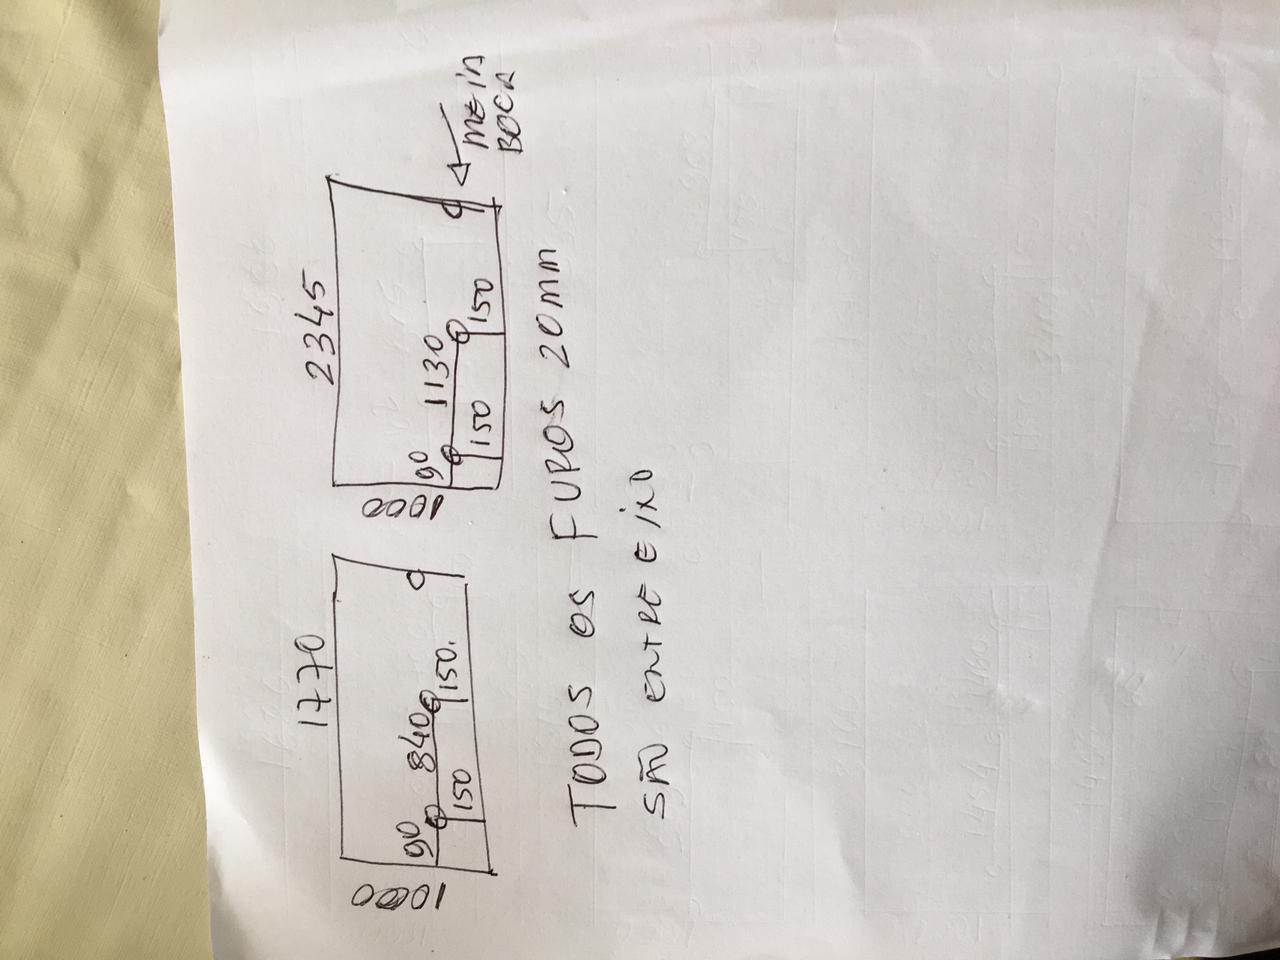 1770
1000
90 840
150 150.
2345
1000
90 1130
150 150
MEIA
BOCA
TODOS OS FUROS 20MM
SÃO ENTRE EIXO